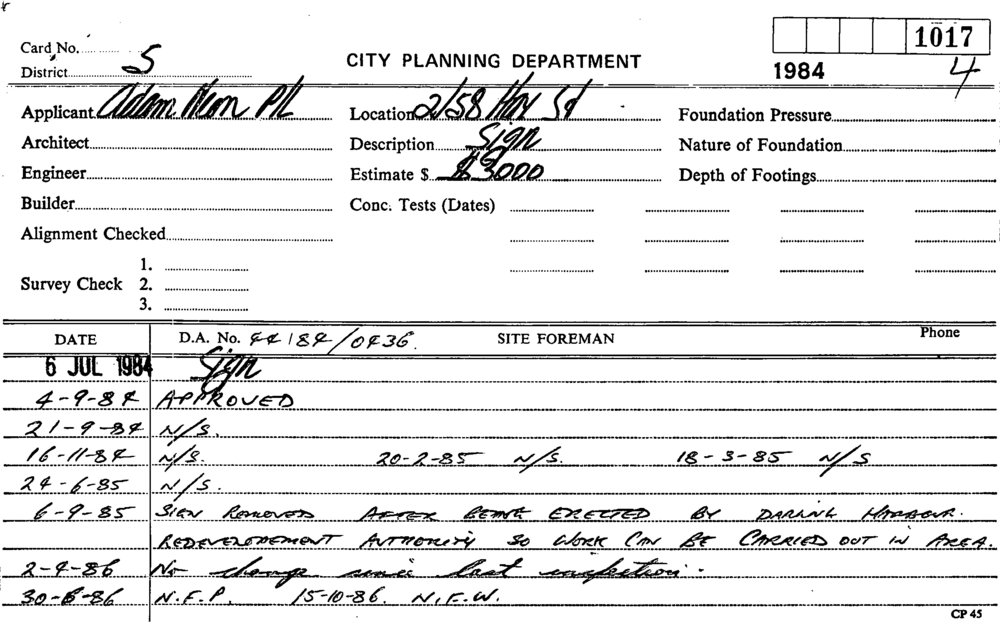 Card No. 1017
District 5 CITY PLANNING DEPARTMENT 1984 4
Applicant Adam Neon P/L Location 2/58 Hay St Foundation Pressure
Architect Description Sign Nature of Foundation
Engineer Estimate $ $3000 Depth of Footings
Builder Conc. Tests (Dates)
Alignment Checked
1.
Survey Check 2.
3.
DATE D.A. No. 44/84/0436. SITE FOREMAN Phone
6 JUL 1984 Sign
4-9-84 APPROVED
21-9-84 N/S.
16-11-84 N/S. 20-2-85 N/S. 18-3-85 N/S
24-6-85 N/S.
6-9-85 SIGN REMOVED AFTER BEING ERECTED BY DARLING HARBOUR.
REDEVELOPEMENT AUTHORITY SO WORK CAN BE CARRIED OUT IN AREA.
2-4-86 No change since last inspection.
30-6-86 N.F.P. 15-10-86. N.F.W.
CP 45